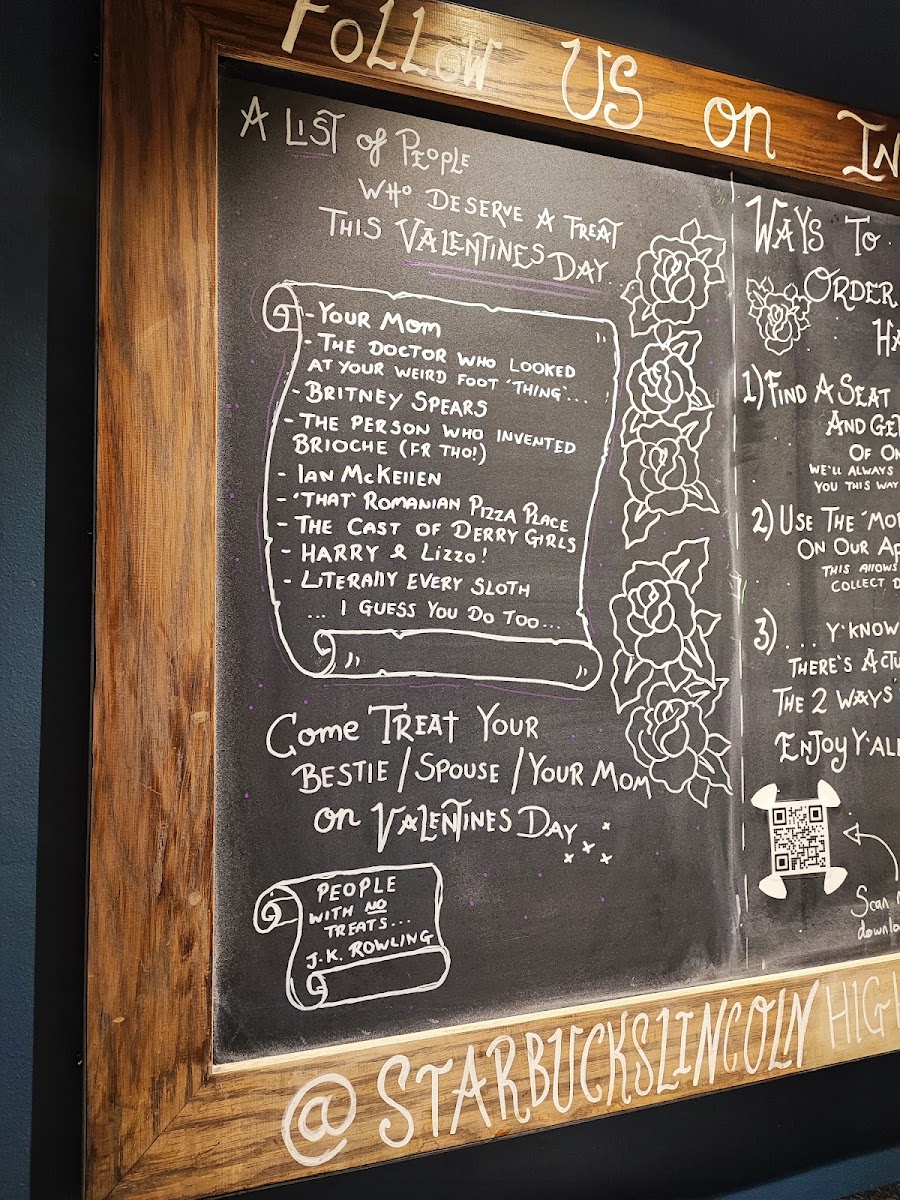 Follow Us on In
A List of People
Who Deserve A Treat
This Valentines Day
- Your Mom
- The Doctor Who Looked
at your weird foot 'thing'...
- Britney Spears
- The person who invented
Brioche (fr tho!)
- Ian McKellen
- 'That' Romanian Pizza Place
- The Cast of Derry Girls
- Harry & Lizzo!
- Literally every sloth
... I guess you do too...
Come Treat Your
Bestie / Spouse / Your Mom
on Valentines Day
People
with no
treats...
J.K. Rowling
Ways To
Order
Ha
1) Find A Seat
And Ge
Of On
We'll always
you this way
2) Use The 'Mo
On Our Ap
This allows
collect D
3) ... Y'know
There's Actu
The 2 ways
Enjoy Y'all
Scan
downlo
@StarbucksLincoln High